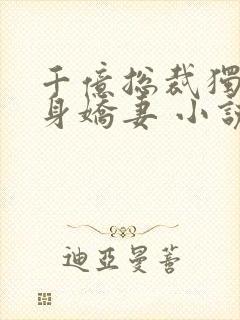 千億總裁獨
身嬌妻 小說
迪亞曼蒈